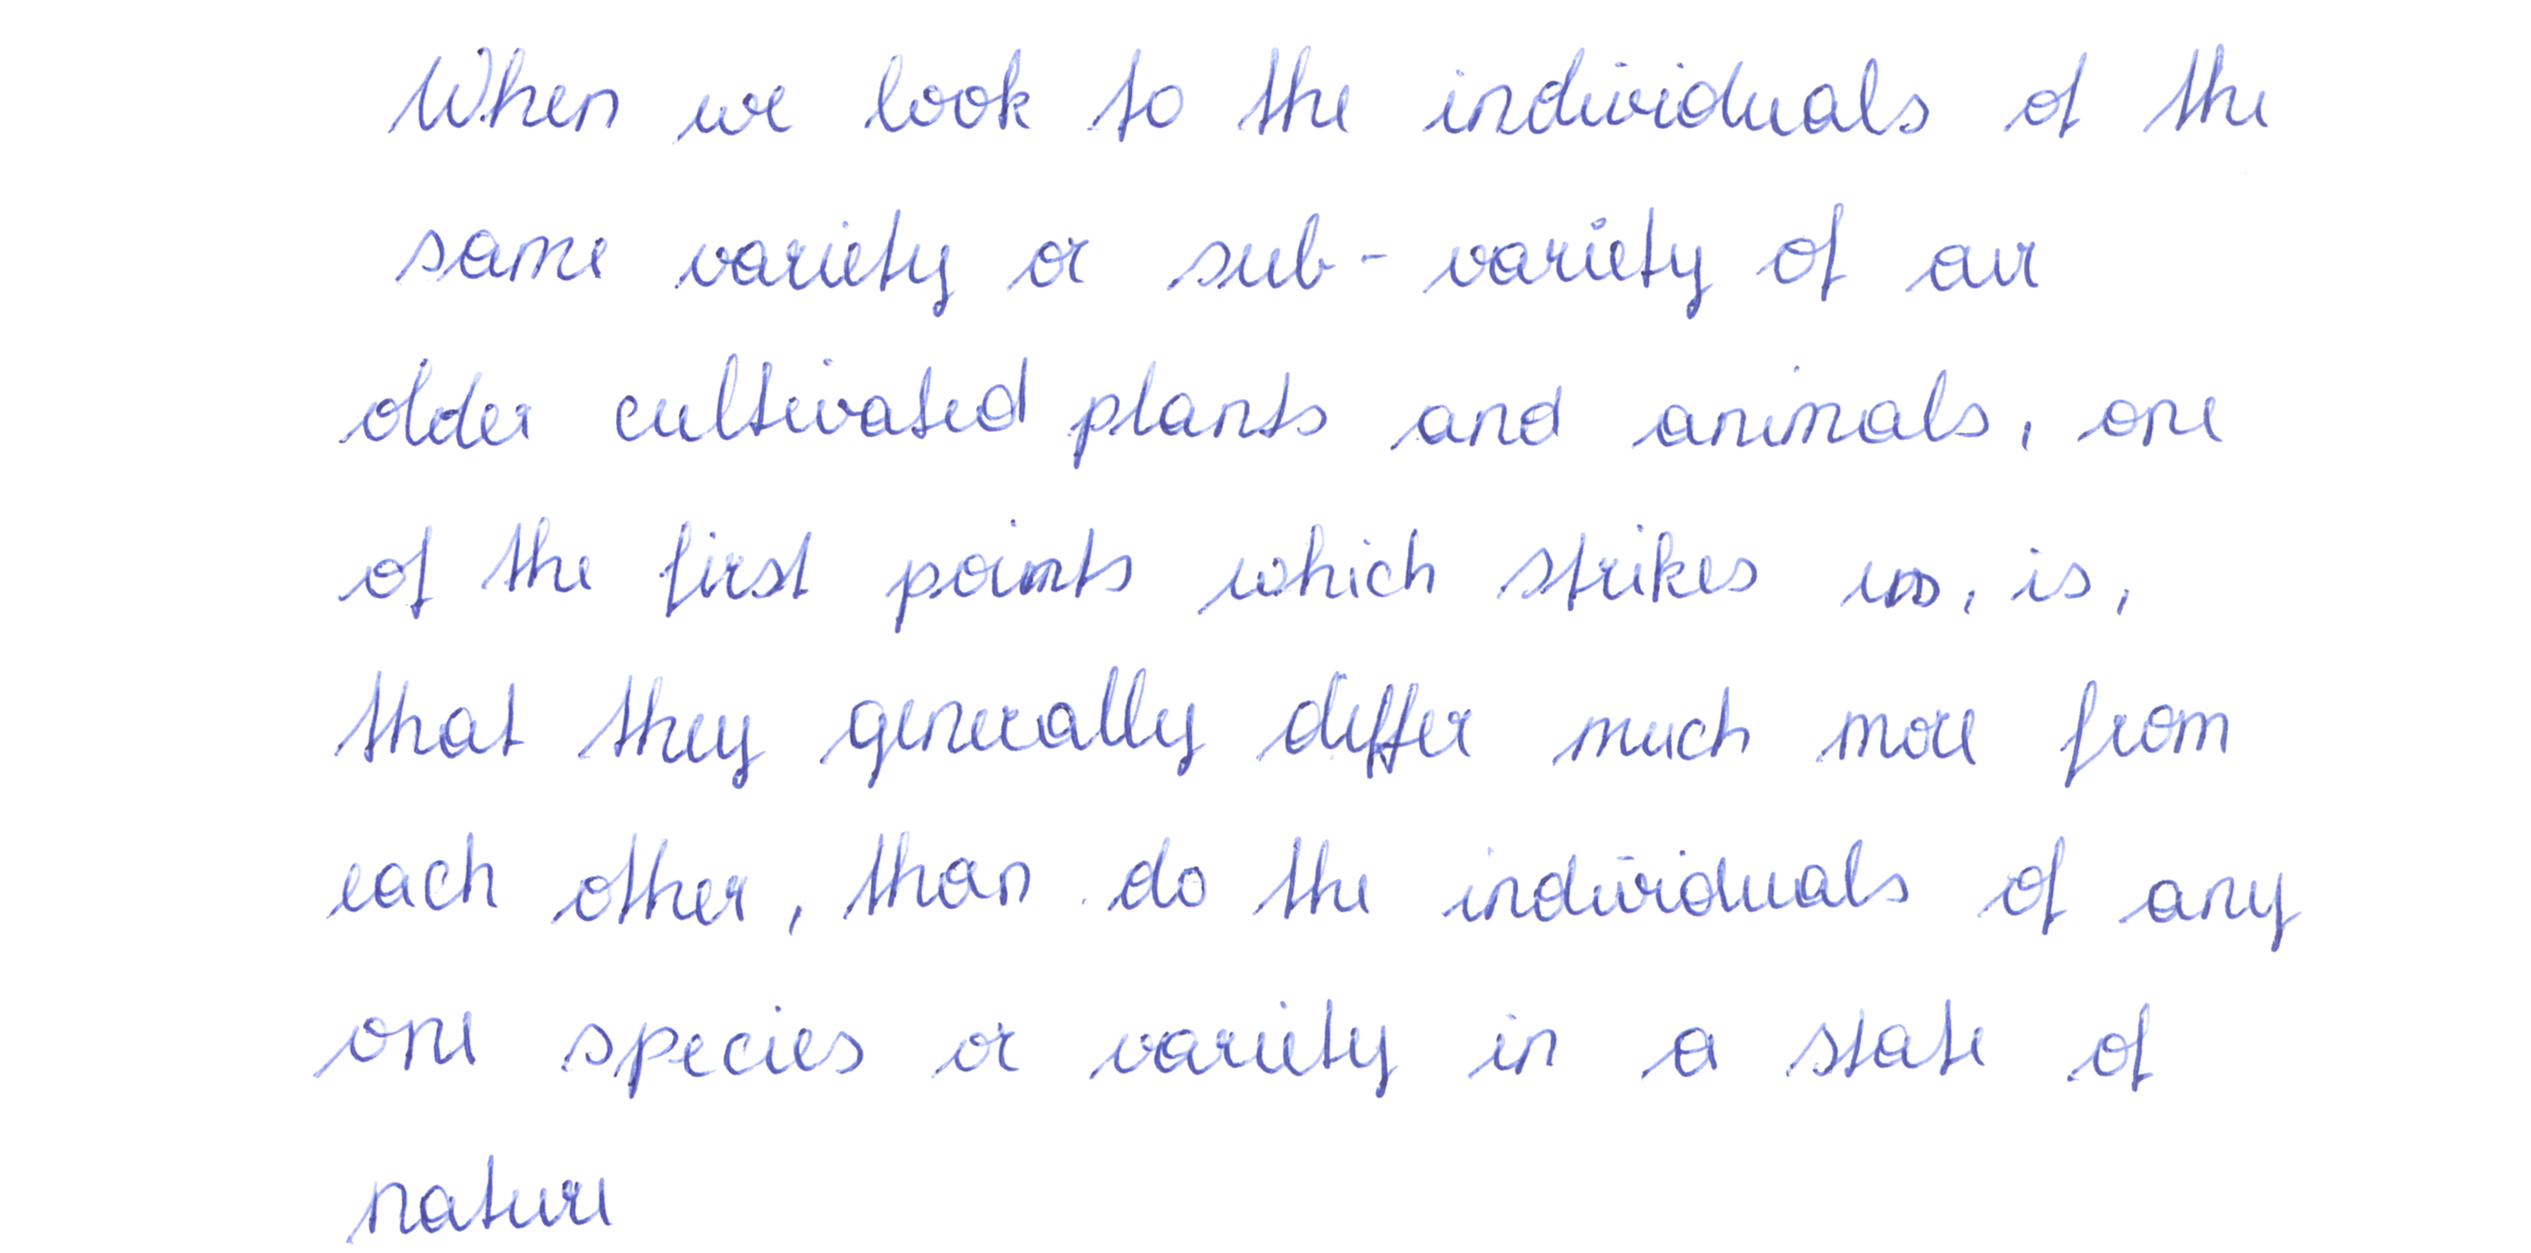 When we look to the individuals of the
same variety or sub-variety of our
older cultivated plants and animals, one
of the first points which strikes us, is,
that they generally differ much more from
each other, than do the individuals of any
one species or variety in a state of
nature